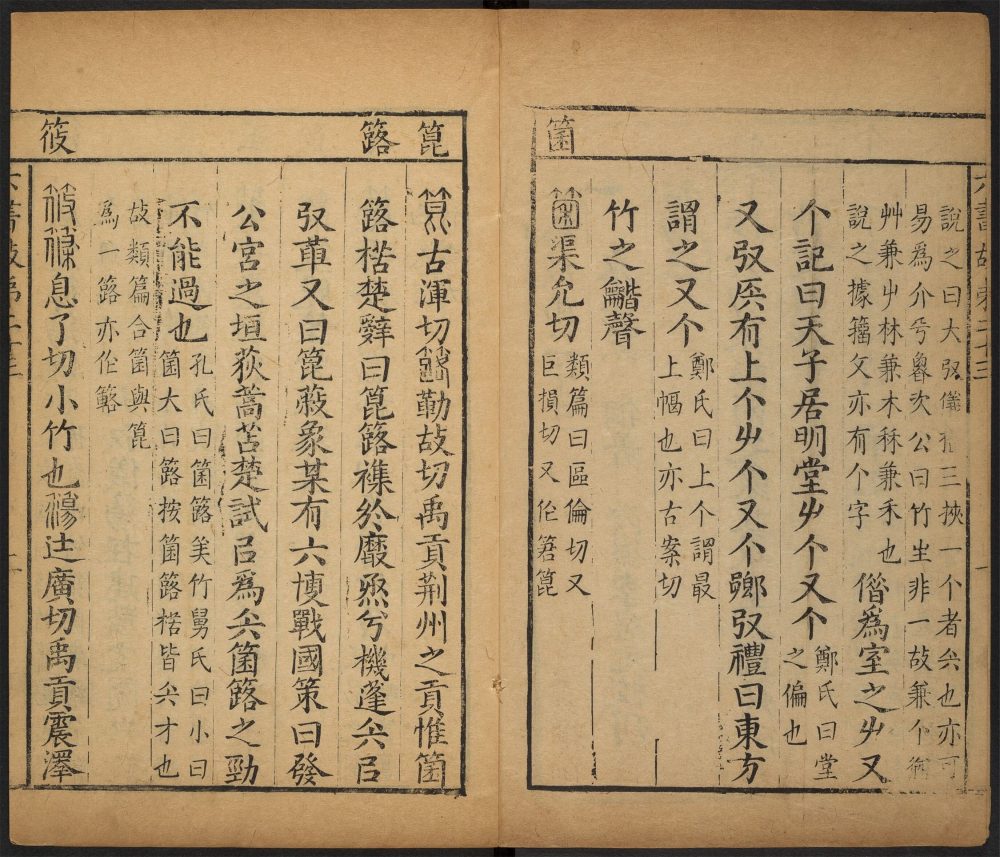 六書故第二十三
箘
說之曰大射儀有三挾一个者矢也亦可
易爲介兮魯次公曰竹生非一故兼个猶
艸兼屮林兼木秝兼禾也
說之據籀文亦有个字
偕爲室之𠂇又
个記曰天子居明堂𠂇个又个
鄭氏曰堂
之偏也
又射矦有上个𠂇个又个鄉射禮曰東方
謂之又个
鄭氏曰上个謂最
上幅也亦古案切
竹之龤聲
箘渠允切
類篇曰區倫切又
巨損切又作箬箟
箟
簬
筱
箟古渾切簬勤故切禹貢荆州之貢惟箘
簬楛楚辭曰箟簬襍於黀烝兮機蓬矢㠯
射革又曰箟蔽象棊有六博戰國策曰發
公宮之垣荻蒿苫楚試㠯爲矢箘簬之勁
不能過也
孔氏曰箘簬美竹舅氏曰小曰
箘大曰簬按箘簬楛皆矢才也
故類篇合箘與箟
爲一簬亦作簵
筱篠息了切小竹也簜辻廣切禹貢震澤